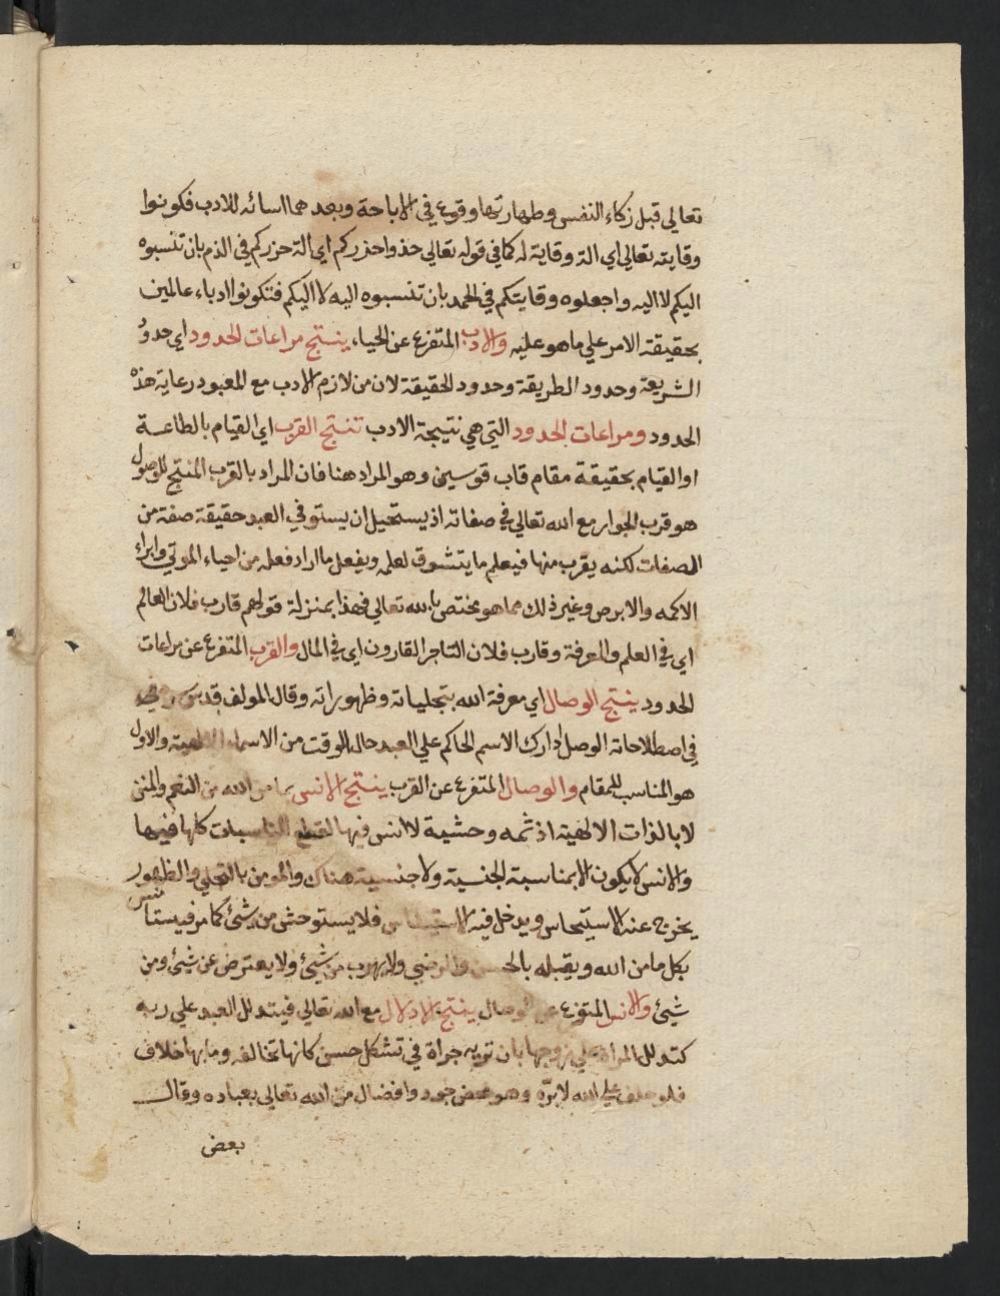 تعالي قبل زكاء النفس وطهارتها وقوع في الاباحة وبعدهما اسائه للادب فكونوا
وقايته تعالي اي الة وقاية له كما في قوله تعالي خذوا حذركم اي الة حزركم في الذم بان تنسبوه
اليكم لا اليه واجعلوه وقايتكم في الحمد بان تنسبوه اليه لا اليكم فتكونوا ادباء عالمين
بحقيقة الامر علي ما هو عليه والادب المتفرع عن الحياء ينتج مراعات الحدود اي حدود
الشريعة وحدود الطريقة وحدود الحقيقة لان من لازم الادب مع المعبود رعاية هذه
الحدود ومراعات الحدود التي هي نتيجة الادب تنتج القرب اي القيام بالطاعة
او القيام بحقيقة مقام قاب قوسين وهو المراد هنا فان المراد بالقرب المنتج للوصول
هو قرب الجوار مع الله تعالي في صفاته اذ يستحيل ان يستوفي العبد حقيقة صفة من
الصفات لكنه يقرب منها فيعلم ما يتشوق لعلمه ويفعل ما اراد فعله من احياء الموتي وابراء
الاكمه والابرص وغير ذلك مما هو مختص بالله تعالي فهذا بمنزلة قولهم قارب فلان العالم
اي في العلم والمعرفة وقارب فلان التاجر القارون اي في المال والقرب المتفرع عن مراعات
الحدود ينتج الوصال اي معرفة الله بتجلياته وظهوراته وقال المولف قدس
في اصطلاحاته الوصل ادارك الاسم الحاكم علي العبد حال الوقت من الاسماء الالهية والاول
هو المناسب للمقام والوصال المتفرع عن القرب ينتج الانس بما من الله من النعم والمنن
لا بالذات الالهية اذ ثمه وحشية لا انس فيها لقطع المناسبات كلها فيها
والانس لا يكون الا بمناسبة الجنسية ولا جنسية هناك والمومن بالتجلي والظهور
يخرج عنه الاستيحاش ويدخل فيه الاستيناس فلا يستوحش من شئ كما مر فيستانس
بكل ما من الله ويقبله بالحسن والرضي ولا يهرب من شئ ولا يعترض عن شئ ومن
شئ والانس المتفرع عن الوصال ينتج الادلال مع الله تعالي فيتدلل العبد علي ربه
كتدلل المراة علي زوجها بان تريه جراة في تشكل حسن كانها تخالفه وما بها خلاف
فلو حلف علي الله لابرّه وهو محض جود وافضال من الله تعالي بعباده وقال
بعض